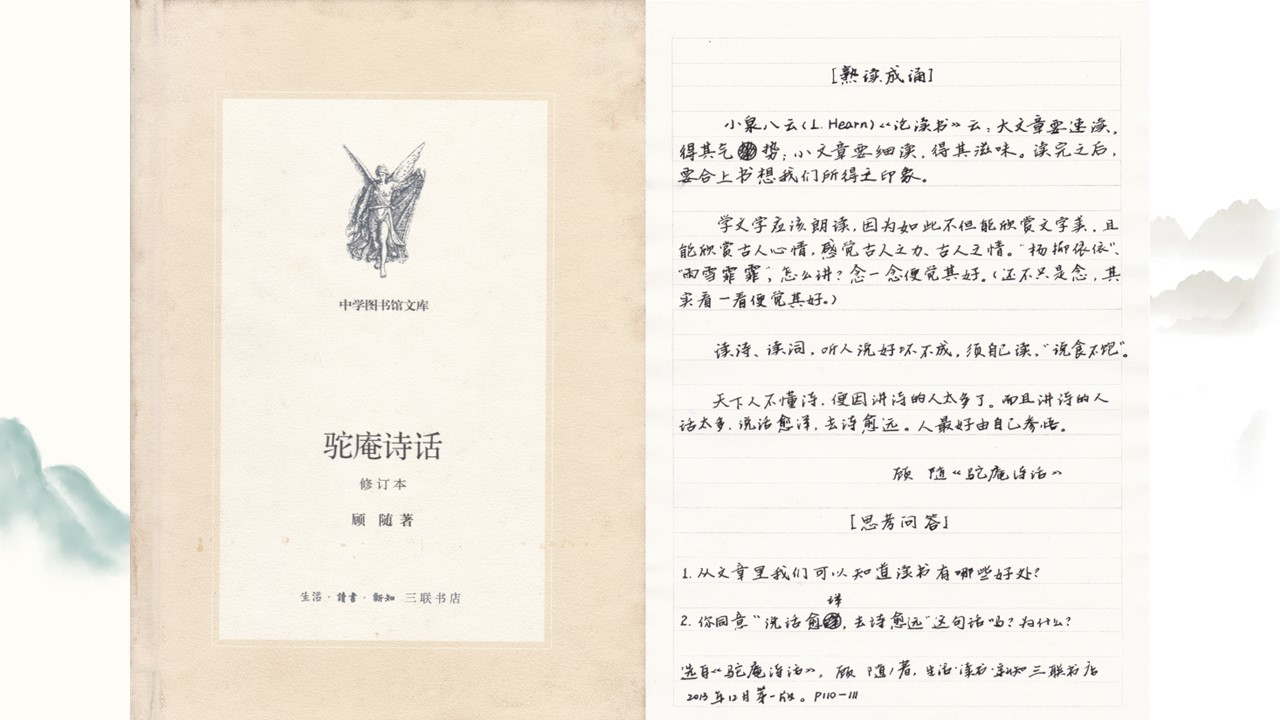 中学图书馆文库
驼庵诗话
修订本
顾 随 著
生活·讀書·新知 三联书店
[熟读成诵]
小泉八云(L. Hearn)《论读书》云:大文章要速读,
得其气势;小文章要细读,得其滋味。读完之后,
要合上书想我们所得之印象。
学文学应该朗读,因为如此不但能欣赏文字美,且
能欣赏古人心情,感觉古人之力、古人之情。“杨柳依依”、
“雨雪霏霏”,怎么讲?念一念便觉其好。(还不只是念,其
实看一看便觉其好。)
读诗、读词,听人说好坏不成,须自己读,“说食不饱”。
天下人不懂诗,便因讲诗的人太多了。而且讲诗的人
话太多,说话愈详,去诗愈远。人最好由自己参悟。
顾 随《驼庵诗话》
[思考问答]
1. 从文章里我们可以知道读书有哪些好处?
2. 你同意“说话愈详,去诗愈远”这句话吗?为什么?
选自《驼庵诗话》,顾 随/著,生活·读书·新知三联书店
2013年12月第一版。P110-111